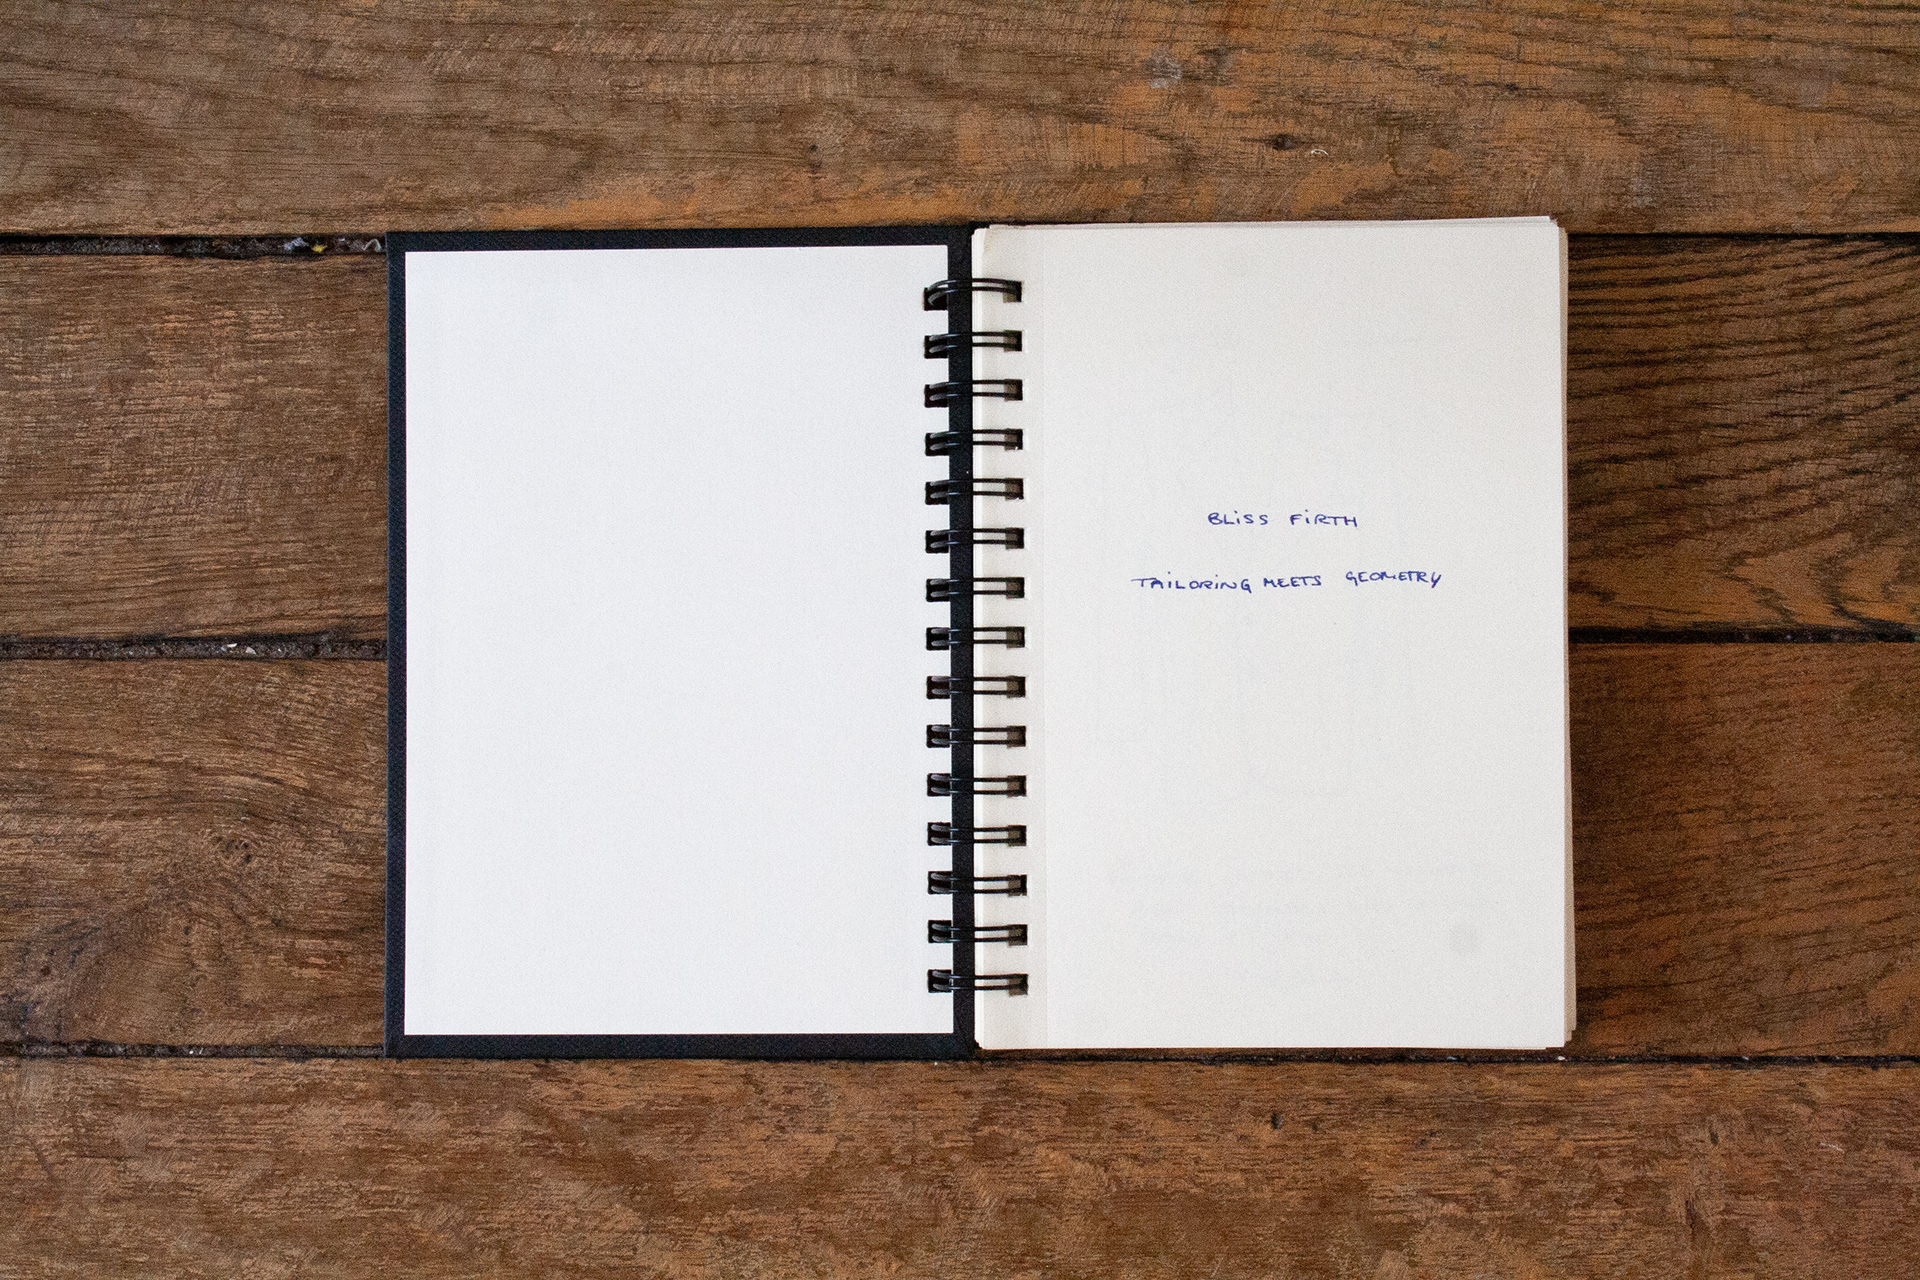 BLiSS FiRTH
TAiLORiNG MEETS GEOMETRY